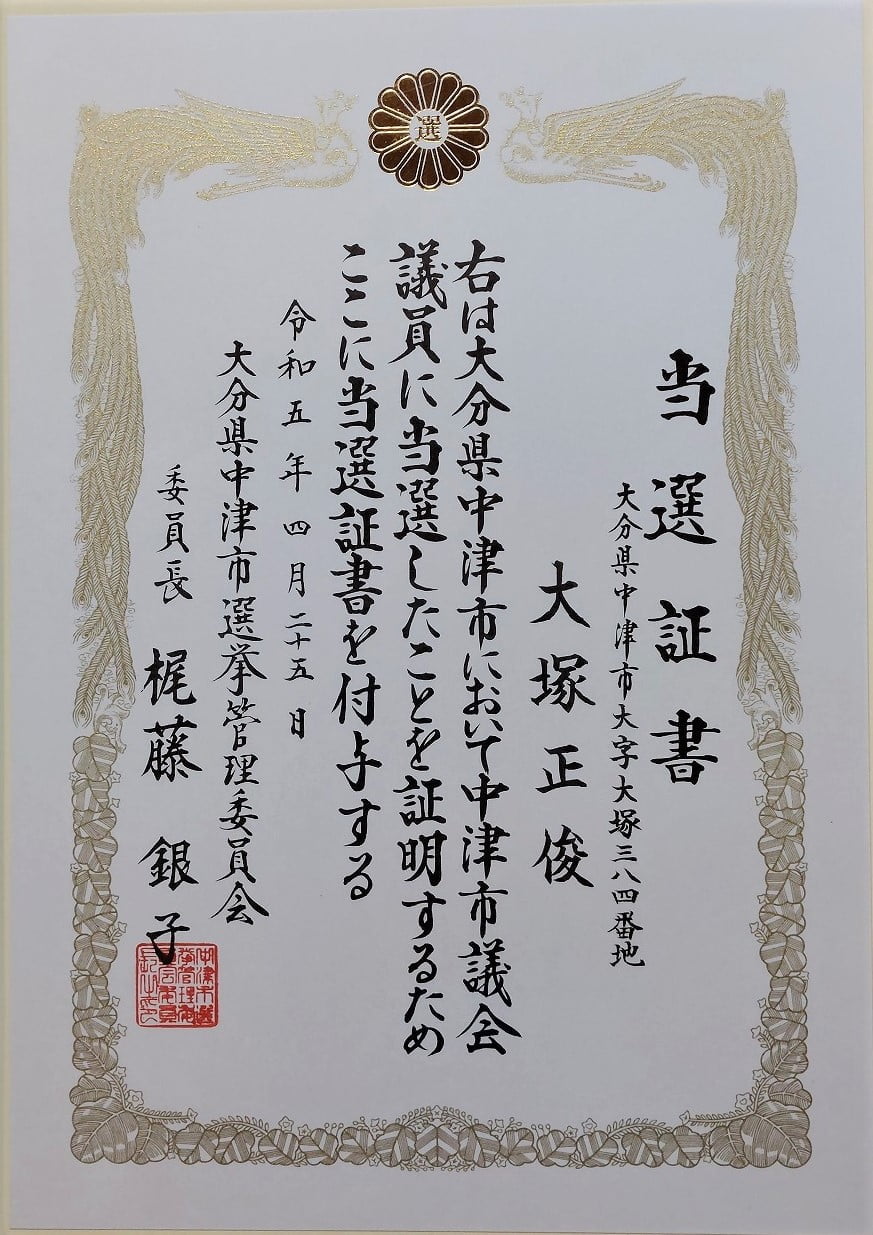 選
当選証書
大分県中津市大字大塚三八四番地
大塚正俊
右は大分県中津市において中津市議会
議員に当選したことを証明するため
ここに当選証書を付与する
令和五年四月二十五日
大分県中津市選挙管理委員会
委員長 梶藤銀子